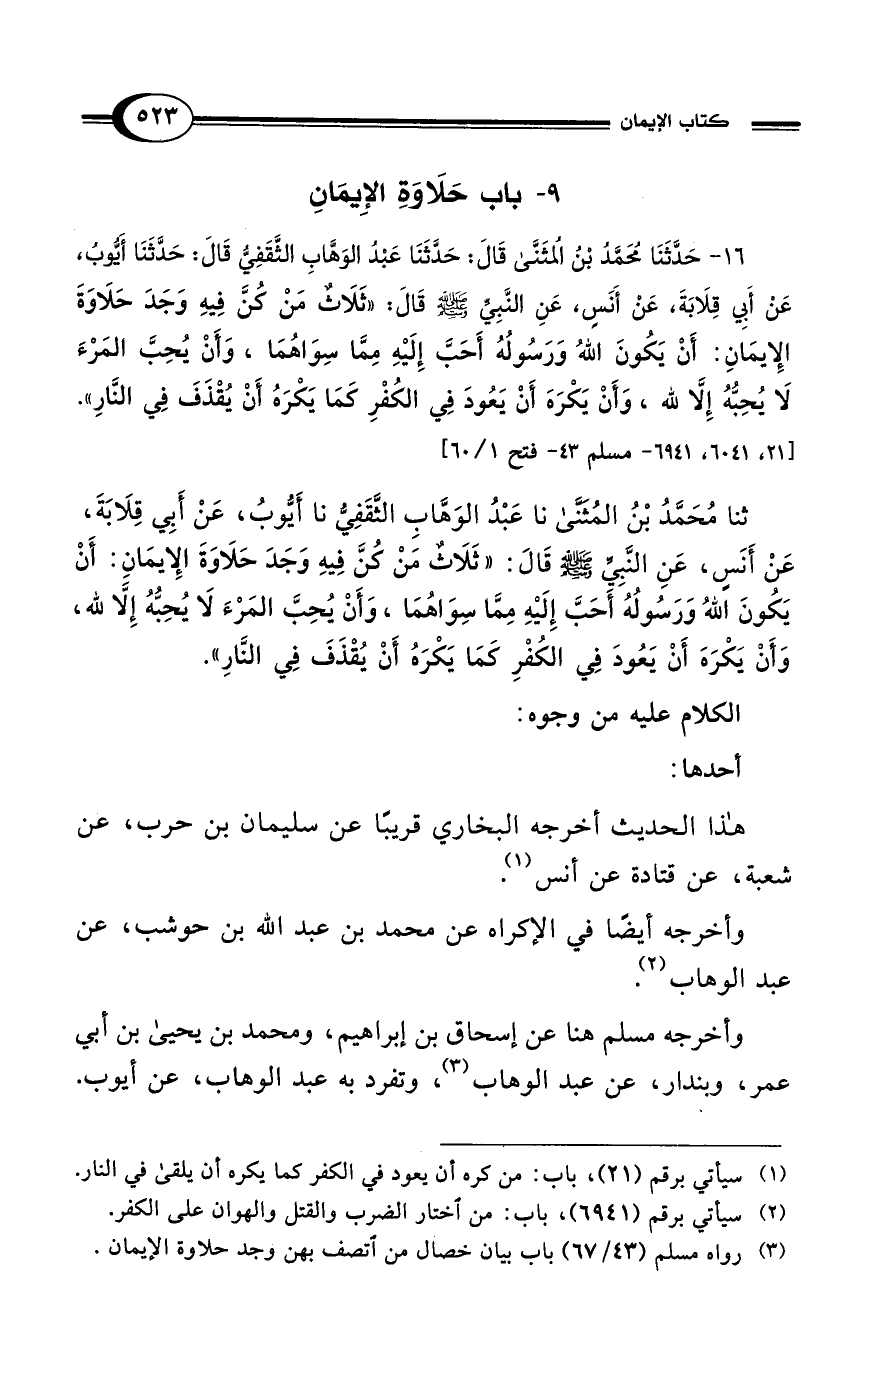 كتاب الإيمان ٥٢٣
٩- باب حَلَاوَةِ الإِيمَانِ
١٦- حَدَّثَنَا مُحَمَّدُ بْنُ المُثَنَّىٰ قَالَ: حَدَّثَنَا عَبْدُ الوَهَّابِ الثَّقَفِيُّ قَالَ: حَدَّثَنَا أَيُّوبُ،
عَنْ أَبِي قِلَابَةَ، عَنْ أَنَسٍ، عَنِ النَّبِيِّ ﷺ قَالَ: «ثَلَاثٌ مَنْ كُنَّ فِيهِ وَجَدَ حَلَاوَةَ
الإِيمَانِ: أَنْ يَكُونَ اللهُ وَرَسُولُهُ أَحَبَّ إِلَيْهِ مِمَّا سِوَاهُمَا ، وَأَنْ يُحِبَّ المَرْءَ
لَا يُحِبُّهُ إِلَّا لله ، وَأَنْ يَكْرَهَ أَنْ يَعُودَ فِي الكُفْرِ كَمَا يَكْرَهُ أَنْ يُقْذَفَ فِي النَّارِ».
[٢١، ٦٠٤١، ٦٩٤١- مسلم ٤٣- فتح ١/ ٦٠]
ثنا مُحَمَّدُ بْنُ المُثَنَّىٰ نا عَبْدُ الوَهَّابِ الثَّقَفِيُّ نا أَيُّوبُ، عَنْ أَبِي قِلَابَةَ،
عَنْ أَنَسٍ، عَنِ النَّبِيِّ ﷺ قَالَ: «ثَلَاثٌ مَنْ كُنَّ فِيهِ وَجَدَ حَلَاوَةَ الإِيمَانِ: أَنْ
يَكُونَ اللهُ وَرَسُولُهُ أَحَبَّ إِلَيْهِ مِمَّا سِوَاهُمَا ، وَأَنْ يُحِبَّ المَرْءَ لَا يُحِبُّهُ إِلَّا لله،
وَأَنْ يَكْرَهَ أَنْ يَعُودَ فِي الكُفْرِ كَمَا يَكْرَهُ أَنْ يُقْذَفَ فِي النَّارِ».
الكلام عليه من وجوه:
أحدها:
هذا الحديث أخرجه البخاري قريبًا عن سليمان بن حرب، عن
شعبة، عن قتادة عن أنس(١).
وأخرجه أيضًا في الإكراه عن محمد بن عبد الله بن حوشب، عن
عبد الوهاب(٢).
وأخرجه مسلم هنا عن إسحاق بن إبراهيم، ومحمد بن يحيىٰ بن أبي
عمر، وبندار، عن عبد الوهاب(٣)، وتفرد به عبد الوهاب، عن أيوب.
(١) سيأتي برقم (٢١)، باب: من كره أن يعود في الكفر كما يكره أن يلقىٰ في النار.
(٢) سيأتي برقم (٦٩٤١)، باب: من ٱختار الضرب والقتل والهوان على الكفر.
(٣) رواه مسلم (٤٣/ ٦٧) باب بيان خصال من ٱتصف بهن وجد حلاوة الإيمان .